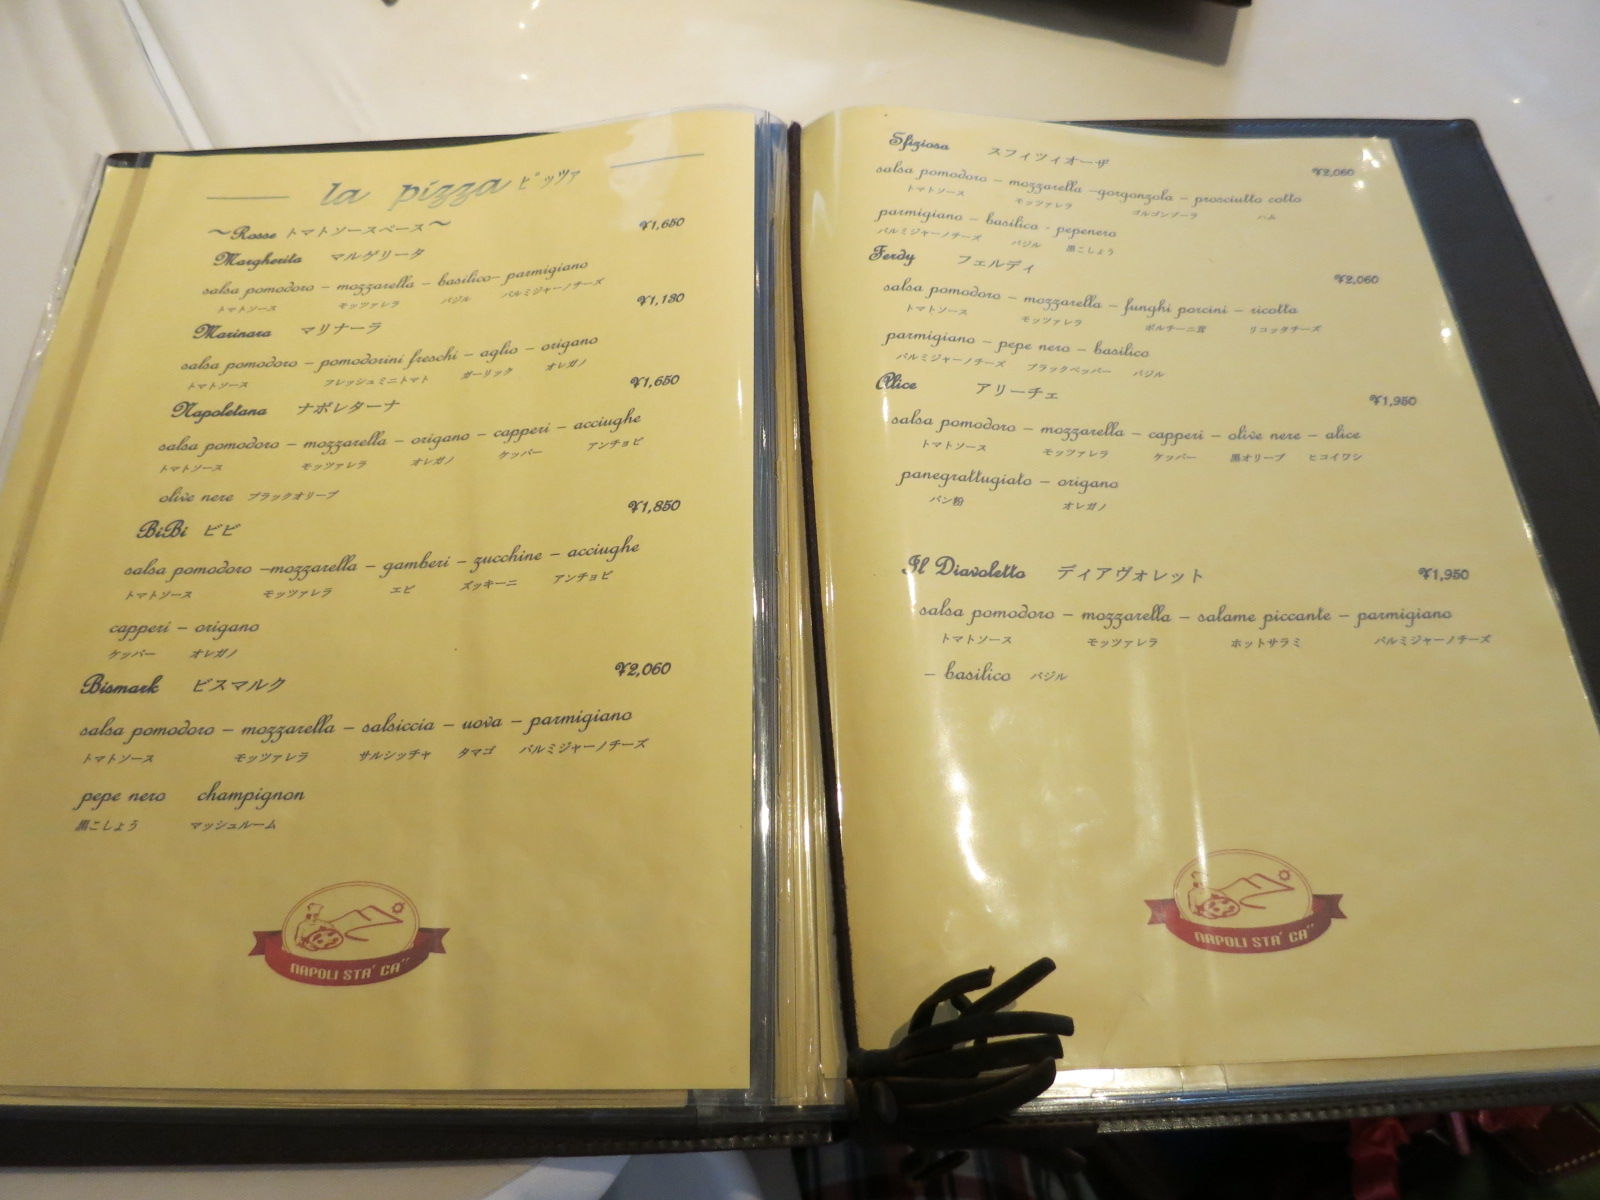 la pizza ピッツァ
～Rosse トマトソースベース～
¥1,650
Margherita マルゲリータ
salsa pomodoro – mozzarella – basilico– parmigiano
トマトソース モッツァレラ バジル パルミジャーノチーズ
¥1,130
Marinara マリナーラ
salsa pomodoro – pomodorini freschi – aglio – origano
トマトソース フレッシュミニトマト ガーリック オレガノ
¥1,650
Napoletana ナポレターナ
salsa pomodoro – mozzarella – origano – capperi – acciughe
トマトソース モッツァレラ オレガノ ケッパー アンチョビ
olive nere ブラックオリーブ
¥1,850
BiBi ビビ
salsa pomodoro –mozzarella – gamberi – zucchine – acciughe
トマトソース モッツァレラ エビ ズッキーニ アンチョビ
capperi – origano
ケッパー オレガノ
¥2,060
Bismark ビスマルク
salsa pomodoro – mozzarella – salsiccia – uova – parmigiano
トマトソース モッツァレラ サルシッチャ タマゴ パルミジャーノチーズ
pepe nero champignon
黒こしょう マッシュルーム
NAPOLI STA' CA''
Sfiziosa スフィツィオーザ ¥2,060
salsa pomodoro – mozzarella –gorgonzola – prosciutto cotto
トマトソース モッツァレラ ゴルゴンゾーラ ハム
parmigiano – basilico - pepenero
パルミジャーノチーズ バジル 黒こしょう
Ferdy フェルディ ¥2,060
salsa pomodoro – mozzarella – funghi porcini – ricotta
トマトソース モッツァレラ ポルチーニ茸 リコッタチーズ
parmigiano – pepe nero – basilico
パルミジャーノチーズ ブラックペッパー バジル
Alice アリーチェ ¥1,950
salsa pomodoro – mozzarella – capperi – olive nere – alice
トマトソース モッツァレラ ケッパー 黒オリーブ ヒコイワシ
panegrattugiato – origano
パン粉 オレガノ
Il Diavoletto ディアヴォレット ¥1,950
salsa pomodoro – mozzarella – salame piccante – parmigiano
トマトソース モッツァレラ ホットサラミ パルミジャーノチーズ
– basilico バジル
NAPOLI STA' CA''